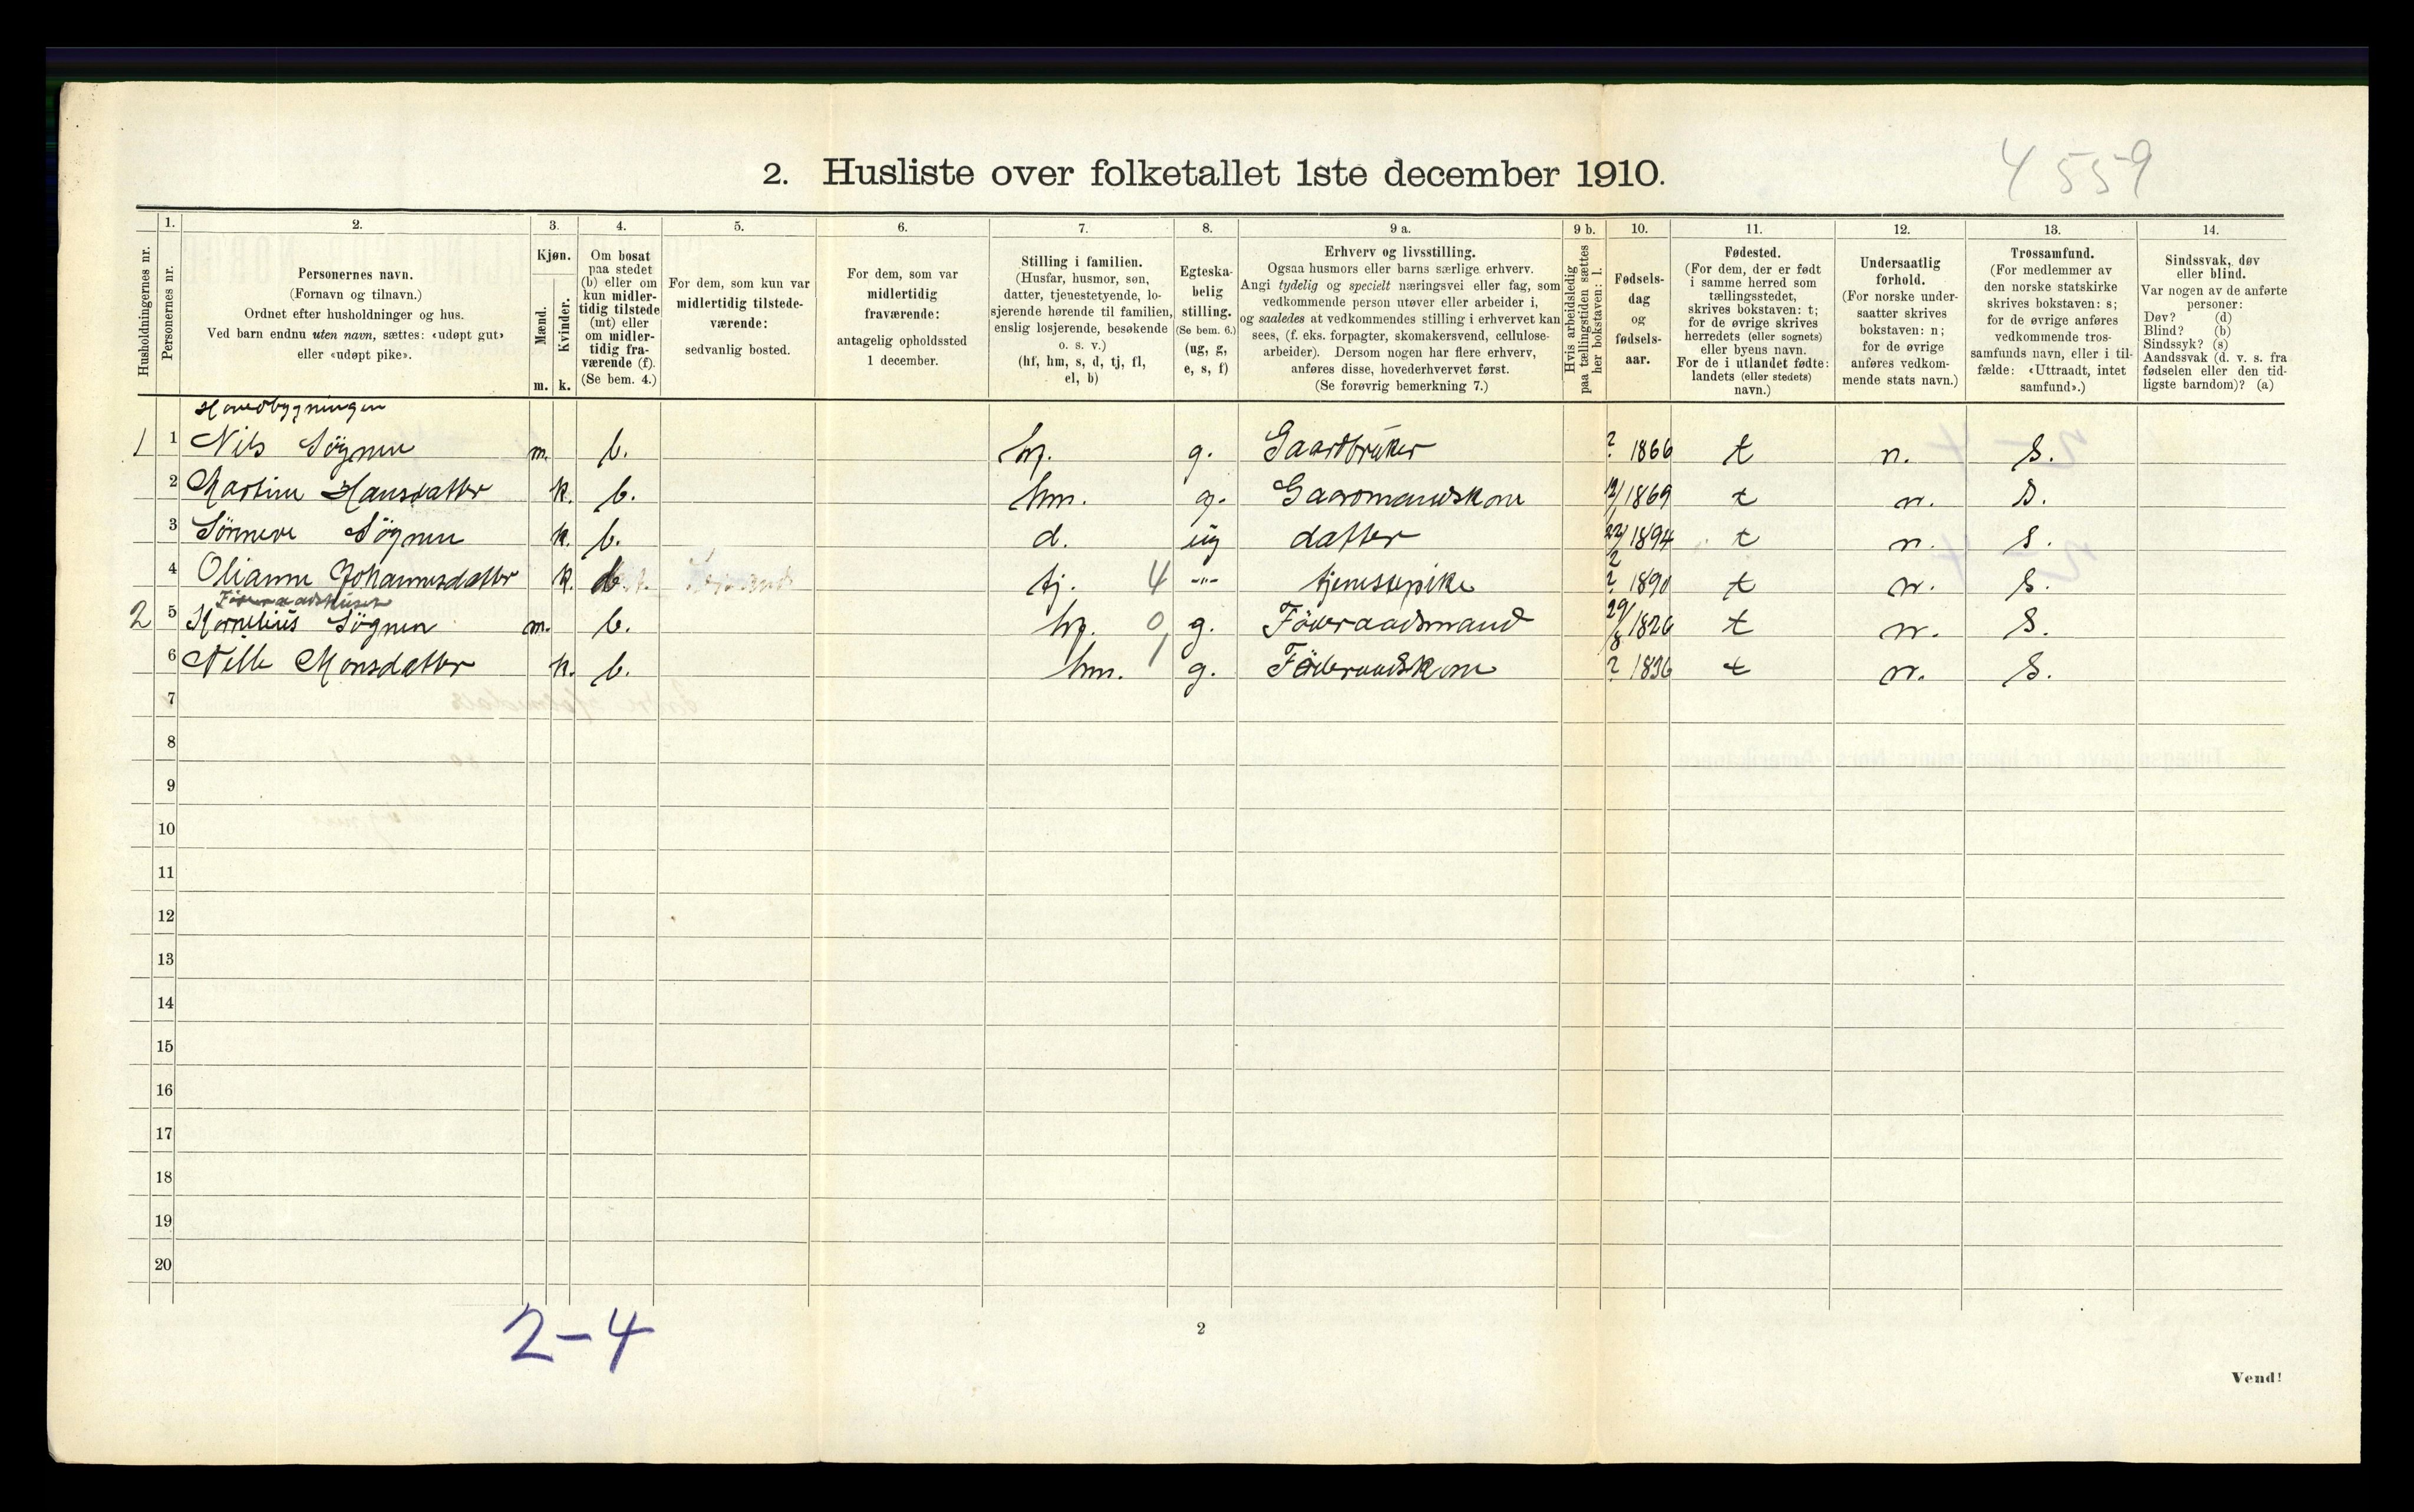 4 559
2. Husliste over folketallet 1ste december 1910.
Husholdningernes nr.
1.
Personernes nr.
2.
Personernes navn.
(Fornavn og tilnavn.)
Ordnet efter husholdninger og hus.
Ved barn endnu uten navn, sættes: «udøpt gut»
eller «udøpt pike».
3.
Kjøn.
Mænd.
Kvinder.
m. k.
4.
Om bosat
paa stedet
(b) eller om
kun midler-
tidig tilstede
(mt) eller
om midler-
tidig fra-
værende (f).
(Se bem. 4.)
5.
For dem, som kun var
midlertidig tilstede-
værende:
sedvanlig bosted.
6.
For dem, som var
midlertidig
fraværende:
antagelig opholdssted
1 december.
7.
Stilling i familien.
(Husfar, husmor, søn,
datter, tjenestetyende, lo-
sjerende hørende til familien,
enslig losjerende, besøkende
o. s. v.)
(hf, hm, s, d, tj, fl,
el, b)
8.
Egteska-
belig
stilling.
(Se bem. 6.)
(ug, g,
e, s, f)
9 a.
Erhverv og livsstilling.
Ogsaa husmors eller barns særlige erhverv.
Angi tydelig og specielt næringsvei eller fag, som
vedkommende person utøver eller arbeider i,
og saaledes at vedkommendes stilling i erhvervet kan
sees, (f. eks. forpagter, skomakersvend, cellulose-
arbeider). Dersom nogen har flere erhverv,
anføres disse, hovederhvervet først.
(Se forøvrig bemerkning 7.)
9 b.
Hvis arbeidsledig
paa tællingstiden sættes
her bokstaven: l.
10.
Fødsels-
dag
og
fødsels-
aar.
11.
Fødested.
(For dem, der er født
i samme herred som
tællingsstedet,
skrives bokstaven: t;
for de øvrige skrives
herredets (eller sognets)
eller byens navn.
For de i utlandet fødte:
landets (eller stedets)
navn.)
12.
Undersaatlig
forhold.
(For norske under-
saatter skrives
bokstaven: n;
for de øvrige
anføres vedkom-
mende stats navn.)
13.
Trossamfund.
(For medlemmer av
den norske statskirke
skrives bokstaven: s;
for de øvrige anføres
vedkommende tros-
samfunds navn, eller i til-
fælde: «Uttraadt, intet
samfund».)
14.
Sindssvak, døv
eller blind.
Var nogen av de anførte
personer:
Døv? (d)
Blind? (b)
Sindssyk? (s)
Aandssvak (d. v. s. fra
fødselen eller den tid-
ligste barndom)? (a)
Hovedbygningen
1 1 Nils Søgnen m. b. hf. g. Gaardbruker ? 1866 t n. s.
2 Martine Hansdatter k. b. hm. g. Gaardmandskone 1869 t n. s.
3 Sønneve Søgnen k. b. d. ug datter 22/2 1894 t n. s.
4 Olianne Johannesdatter k. b. tj. 4 -"- tjenestepike ? 1890 t n. s.
Føderaadshuset
2 5 Kornelius Søgnen m. b. hf. 0, g. Føderaadsmand 29/8 1826 t n. s.
6 Nille Monsdatter k. b. hm. g. Føderaadskone ? 1836 t n. s.
7
8
9
10
11
12
13
14
15
16
17
18
19
20
2-4
2
Vend!